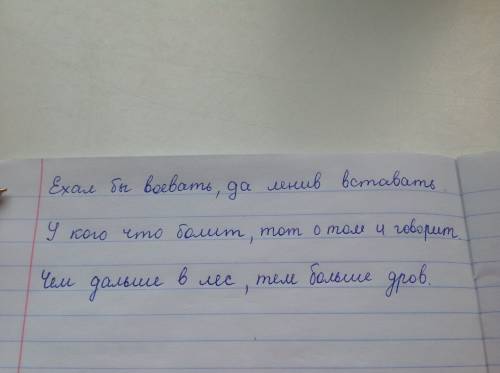 Ехал бы воевать, да ленив вставать.
У кого что болит, тот о том и говорит.
Чем дальше в лес, тем больше дров.